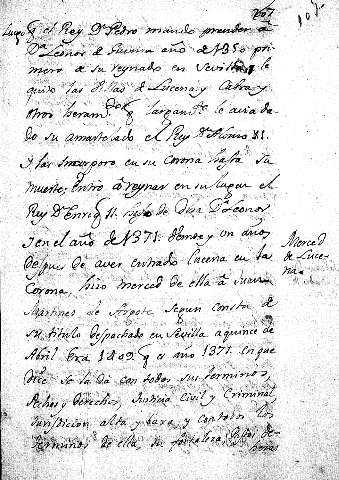 107
Luego q el Rey Dn Pedro mando prender à
Dª Leonor de Guzman año de 1350 pri-
mero de su reynado en Sevilla, le
quito las Villas de Lucena, y Cabra y
otros heredamtos q larganmte. le avia da-
do su amartelado el Rey Dn Alonso XI.
I las Incorporo en su Corona hasta su
muerte; entrò à reynar en su lugar el
Rey Dn Enriq II. hijo de Doña Leonor
I en el año de 1371. veinte y un años
despues de aver entrado Lucena en la
Corona hizo merced de ella à Juan
Martines de Argote segun consta de
su titulo despachado en Sevilla a quince de
Abril Era 1409. q es año 1371. En que
dice se la dà con todos sus terminos,
Pechos y derechos, Justicia Civil y Criminal
Jurisdicion alta y baxa, y con todos los
terminos de ella, su fortaleza,
Merced
de Luce-
na